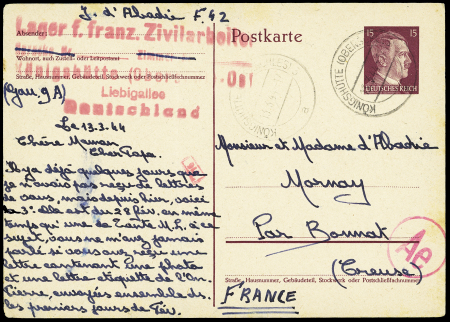 J. d'Abadie F.42
Lager f. franz. Zivilarbeiter
Absender:
Wohnort, auch Zustell- oder Leitpostamt
Königshütte
-Ost
Straße, Hausnummer, Gebäudeteil, Stockwerk oder Postschließfachnummer
Liebigallee
(Gau 9A) Deutschland
Postkarte
15 15
DEUTSCHES REICH
KÖNIGSHÜTTE (OBERSCHLES
Le 13.3.44
Chère Maman
Cher Papa.
Il y a déjà quelques jours que
je n'avais pas reçu de lettres
de vous, mais depuis hier, voici
la 3e. Elle est du 28 fév. en même
temps qu'une de Tante M.L. à ce
sujet, vous ne m'avez jamais
parlé si vous avez reçu une
lettre contenant une photo
et une lettre étiquette de l'On.
Pierre, envoyés ensemble ds.
les premiers jours de Fév.
Monsieur et Madame d'Abadie
Mornay
Par Bonnat
(Creuse)
Ae
Straße, Hausnummer, Gebäudeteil, Stockwerk oder Postschließfachnummer
FRANCE